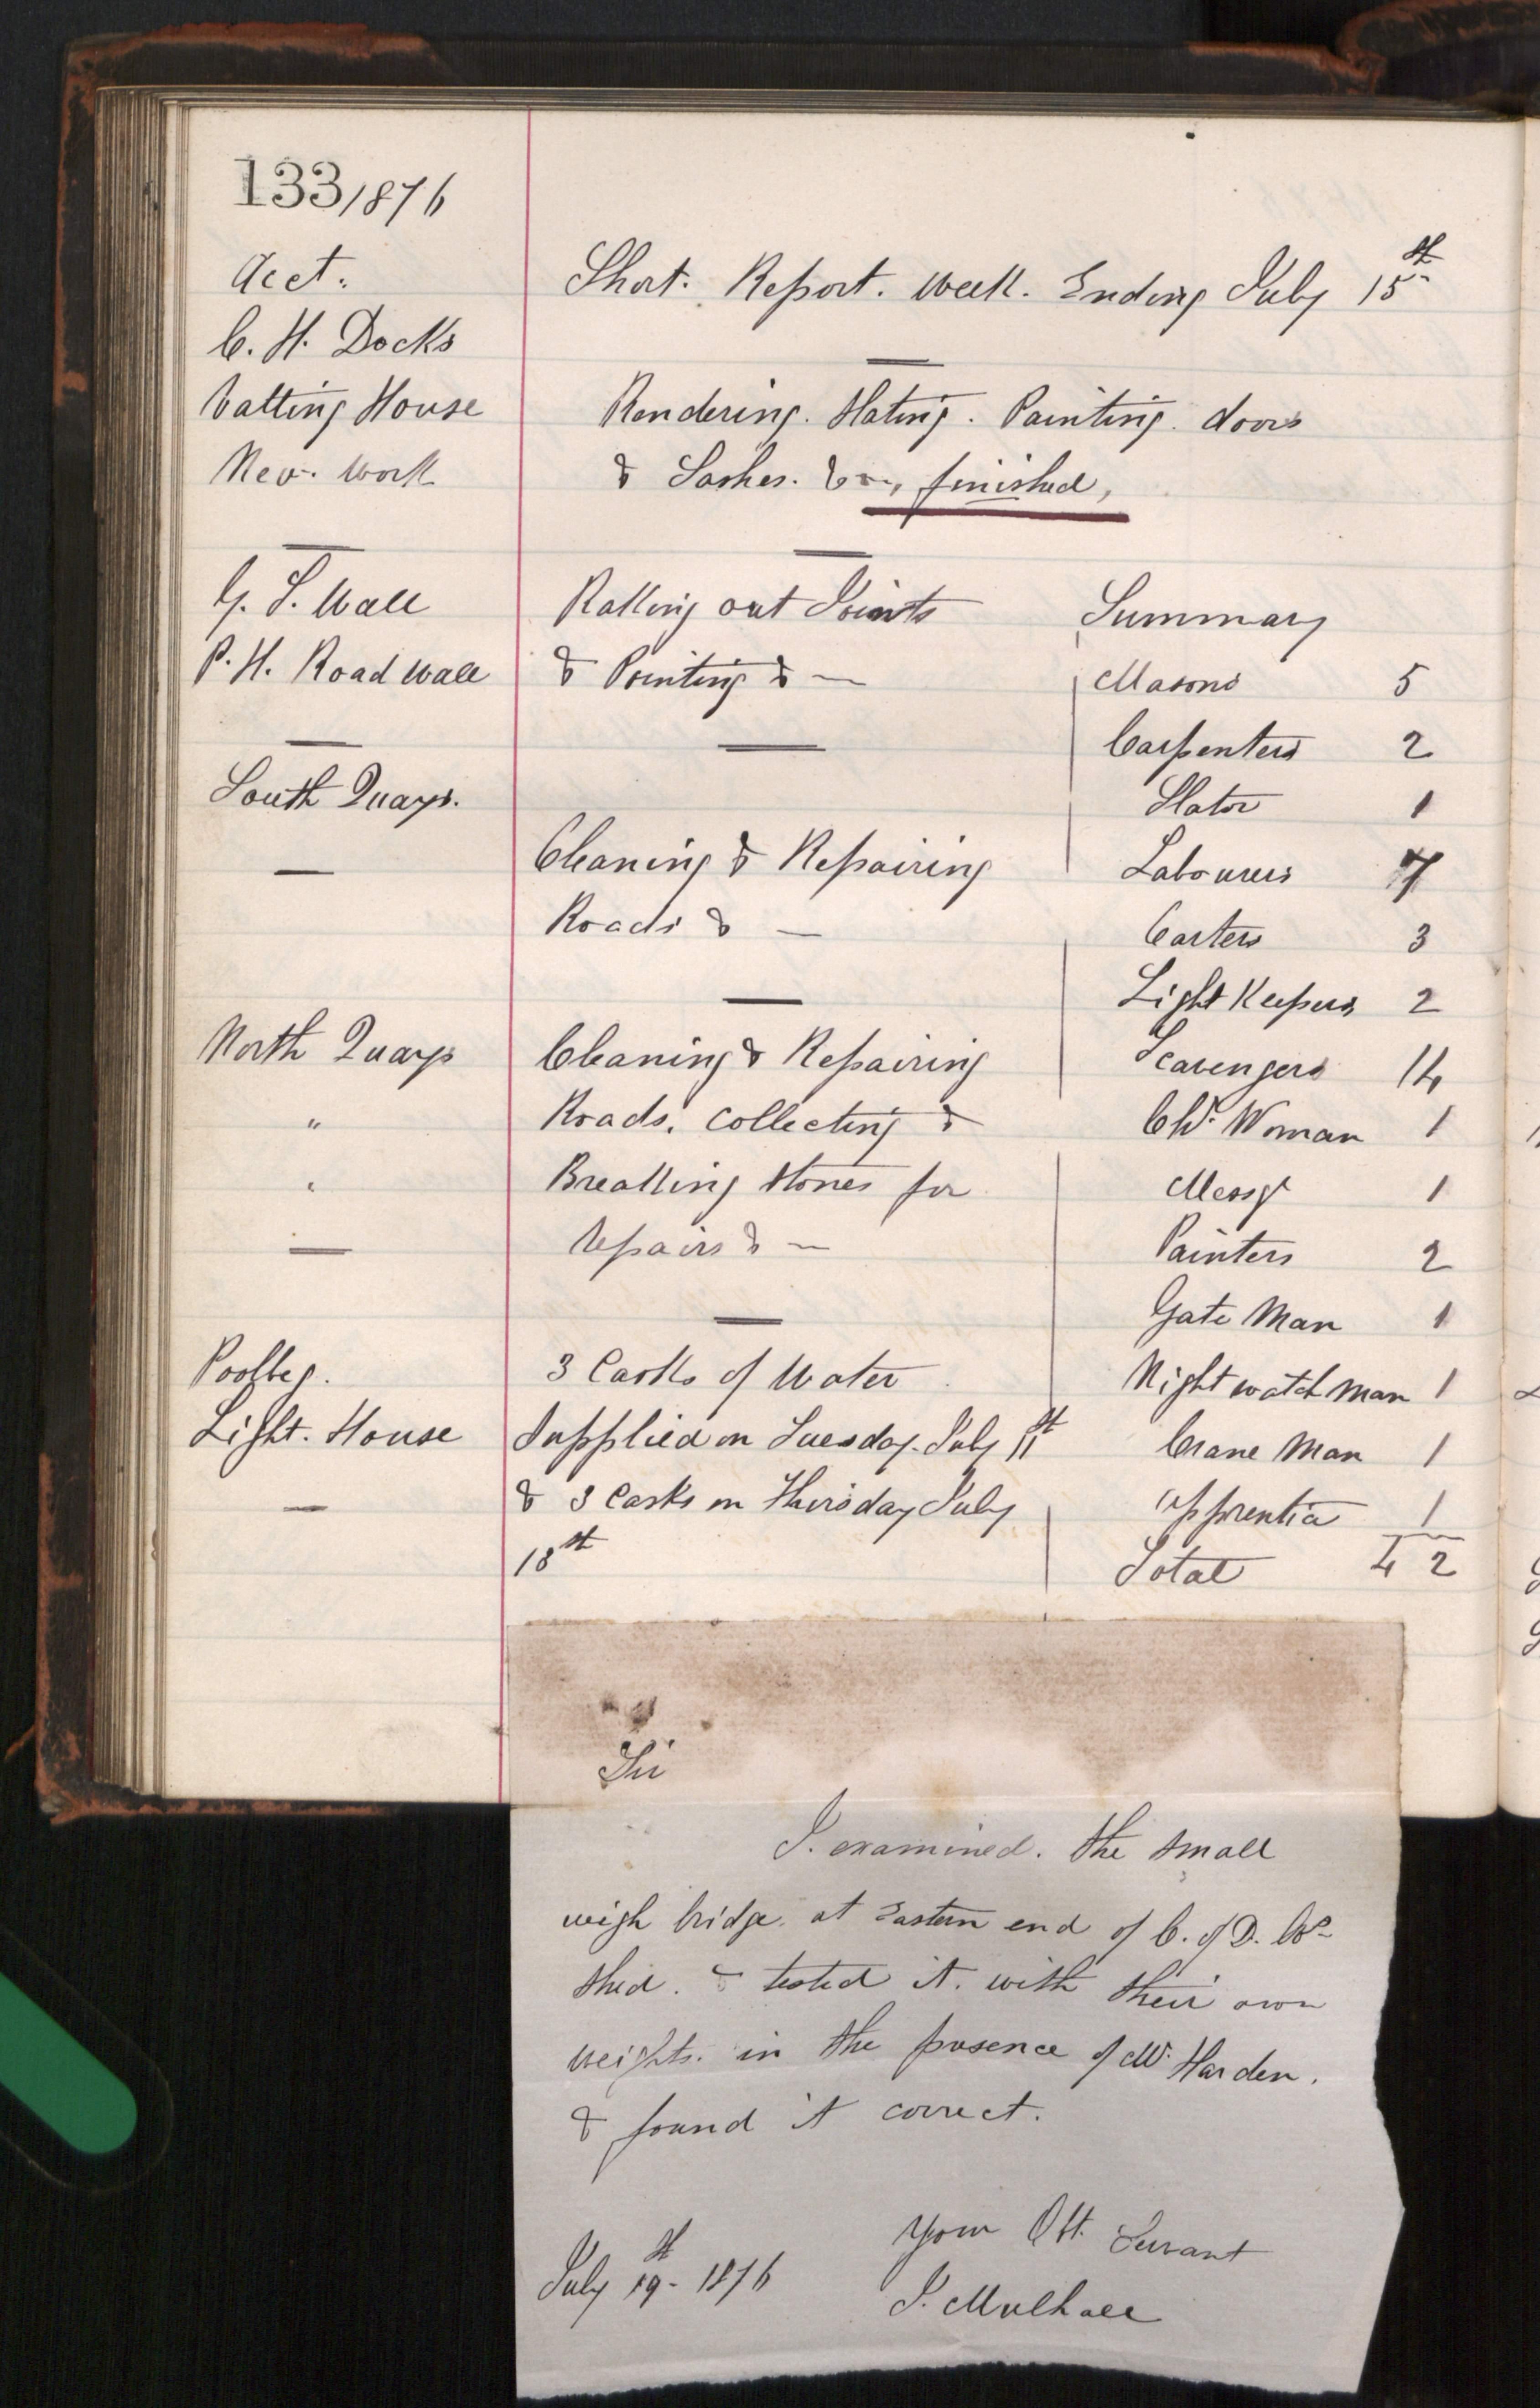 133/1876
Acct. Short. Report. Week. Ending July 15th
C. H. Docks
Vatting House Rendering. Slating. Painting. doors
New. Work & Sashes. &c, finished,
G. S. Wall Raking out Joints Summary
P. H. Road Wall & Pointing & — Masons 5
Carpenters 2
South Quays. Slator 1
Cleaning & Repairing Labourers 7
Roads & — Carters 3
Light Keepers 2
North Quays Cleaning & Repairing Scavengers 14
" Roads. Collecting & Cld. Woman 1
" Breaking stones for Messgr 1
repairs & — Painters 2
Gate Man 1
Poolbeg. 3 Casks of Water Night watch man 1
Light. House Supplied on Tuesday. July 11th Crane Man 1
& 3 Casks on Thursday July Apprentice 1
18th Total 42
Sir
I. examined. the small
weigh bridge. at Eastern end of C. of D. Co
shed. & tested it. with their own
weights. in the presence of Mr. Harden.
& found it correct.
Your Obt. Servant
July 19th - 1876 J. Mulhall